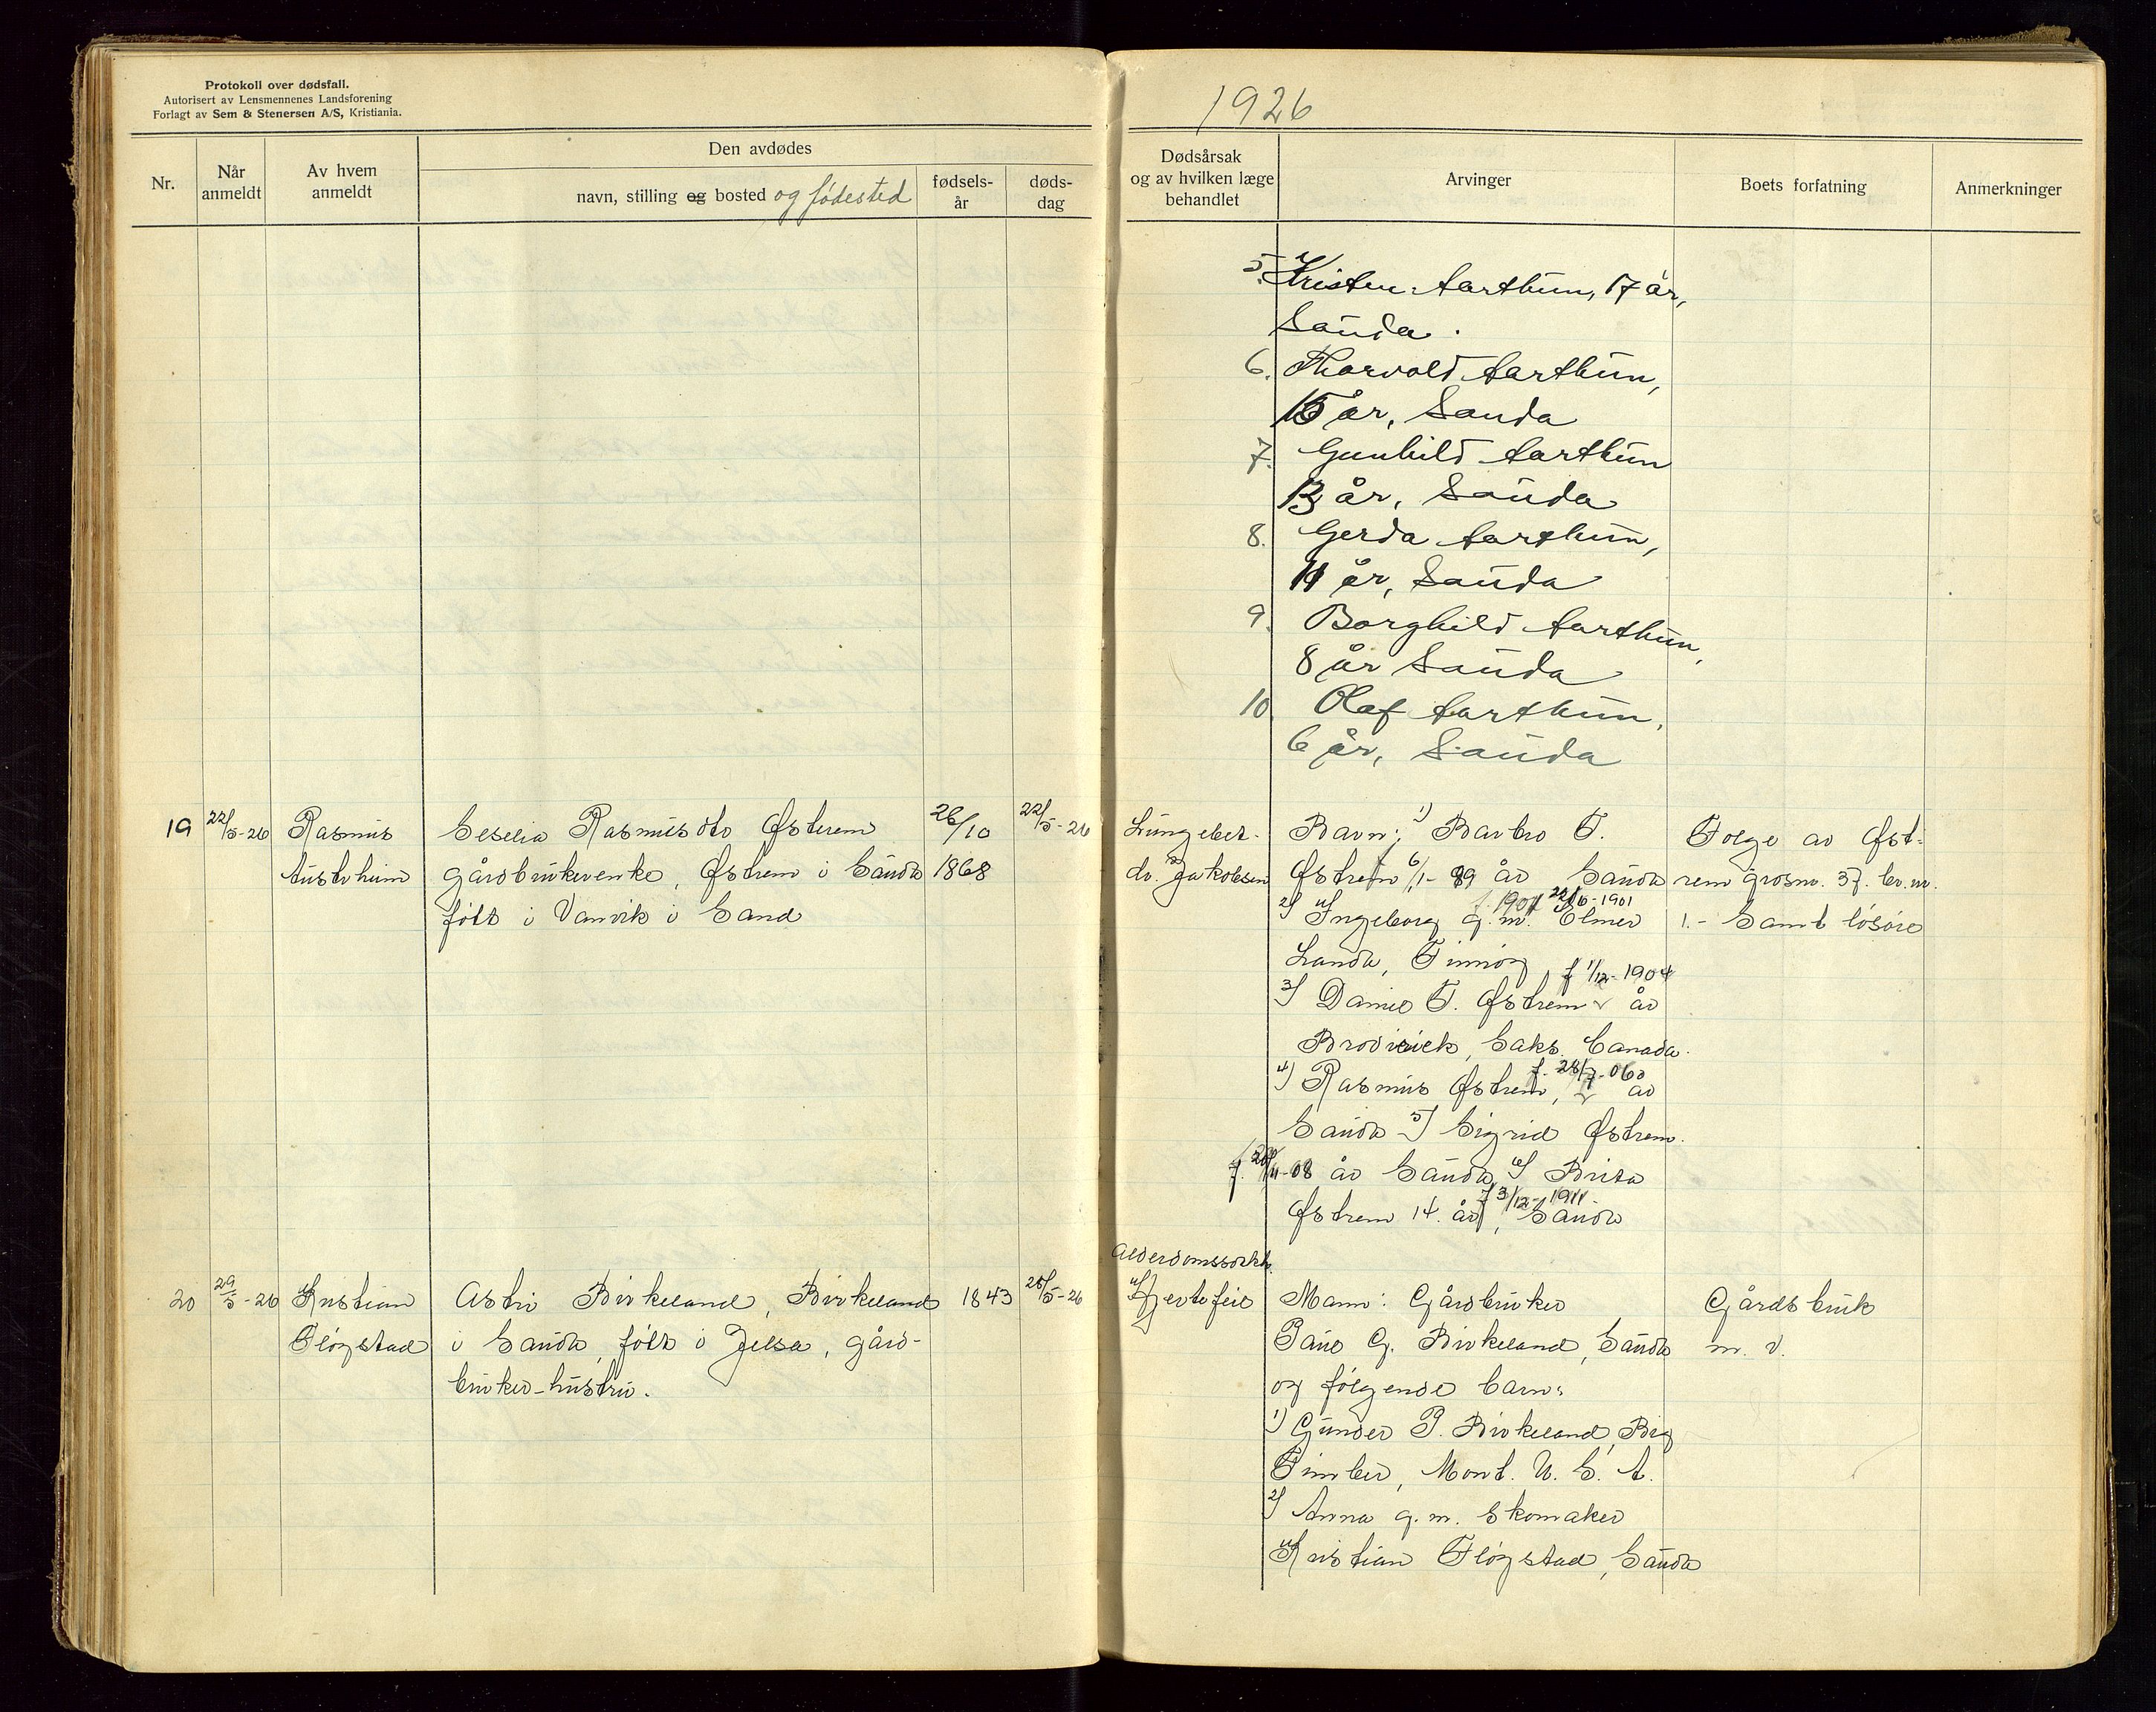 Protokoll over dødsfall.
Autorisert av Lensmennenes Landsforening
Forlagt av Sem & Stenersen A/S, Kristiania.
1926
Nr.
Når anmeldt
Av hvem anmeldt
Den avdødes
navn, stilling og bosted og fødested
fødsels-år
døds-dag
Dødsårsak
og av hvilken læge
behandlet
Arvinger
Boets forfatning
Anmerkninger
5. Kristen Aarthun, 17 år,
Sauda.
6. Thorvald Aarthun,
15 år, Sauda
7. Gunhild Aarthun
13 år, Sauda
8. Gerda Aarthun,
11 år, Sauda
9. Borghild Aarthun,
8 år Sauda
10 Olaf Aarthun,
6 år, Sauda
19
22/5-26
Rasmus
Austrhuim
Seselia Rasmusdtr Østrem
gårdbrukerenke, Østrem i Sauda
født i Vanvik i Sand
26/10
1868
22/5-26
Lungebet.
dr. Jakobsen
Barn: 1) Barbro T.
Østrem 6/1-99 år Sauda
2) Ingeborg g.m. Elmer 22/6-1901
Landa, Finnøy
3) Daniel T. Østrem f 1/12-1904 år
Broderick, Saks. Canada.
4) Rasmus Østrem, f. 28/7-06 år
Sauda 5) Sigrid Østrem.
f. 20/11-08 år Sauda 6) Brita
Østrem 14. år f 3/12-1911, Sauda
Folge av Øst-
rem grdsnr. 37. br.nr.
1.- Samt løsøre
20
29/5-26
Kristian
Fløgstad
Astri Birkeland, Birkeland
i Sauda, født i Jelsa, gård-
bruker-hustru.
1843
28/5-26
Alderdomssvakh.
Hjertefeil
Mann: Gårdbruker
Paul G. Birkeland, Sauda
og følgende barn:
1) Gunder P. Birkeland, Big
Timber, Mont. U. S. A.
2) Anna g. m. Skomaker
Kristian Fløgstad, Sauda
Gårdsbruk
m. v.